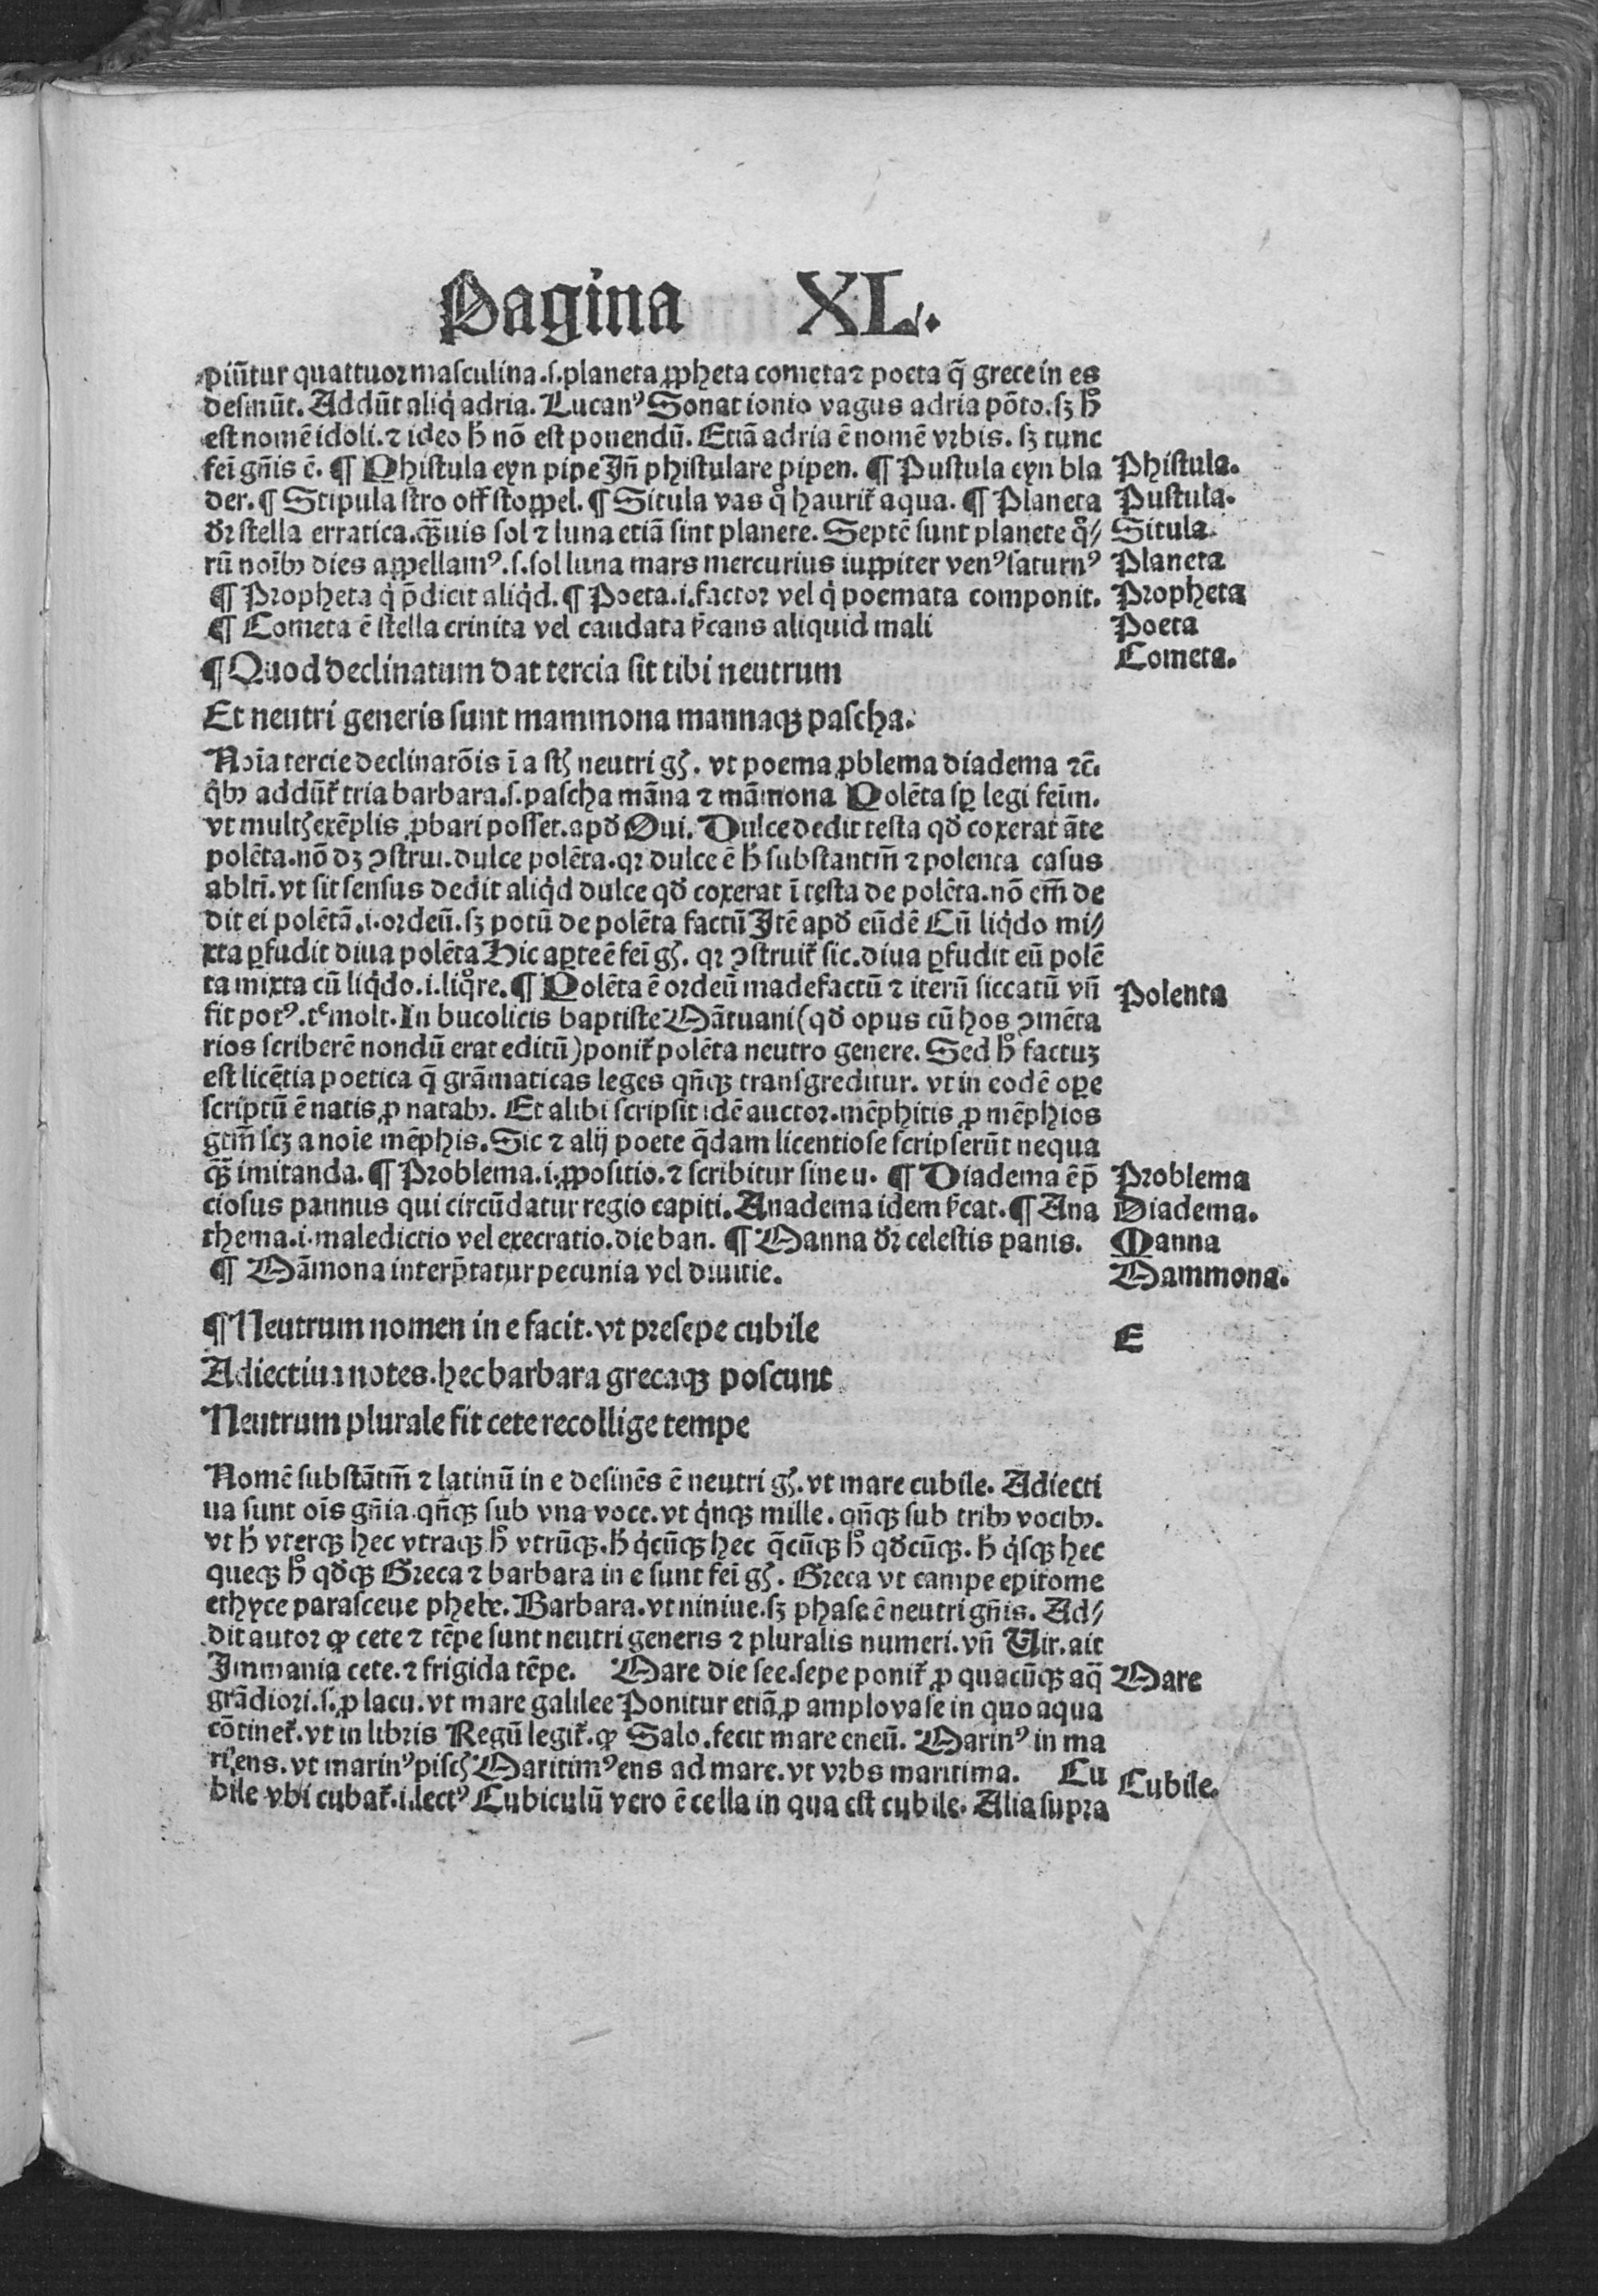 Pagina XL.
piūtur quattuor masculina.s.planeta ꝓpheta cometa ⁊ poeta q̄ grece in es
desinūt. Addūt aliq̇ adria. Lucanꝰ Sonat ionio vagus adria pōto.sꝫ hͦ
est nomē idoli.⁊ ideo h̄ nō est ponendū. Etiā adria ē nomē vrbis. sꝫ tunc
fei̅ gn̄is ē. ¶ Phistula eyn pipe Jn̄ phistulare pipen. ¶ Pustula eyn bla
der. ¶ Stipula stro off stoppel. ¶ Situla vas qͦ haurit̄ aqua. ¶ Planeta
dr̄ stella erratica.q̄uis sol ⁊ luna etiā sint planete. Septē sunt planete qͦ⸗
rū noi̅bꝫ dies appellamꝰ.s.sol luna mars mercurius iuppiter venꝰ saturnꝰ
¶ Propheta q̇ p̄dicit aliq̇d. ¶ Poeta.i.factor vel q̇ poemata componit.
¶ Cometa ē stella crinita vel caudata s̄cans aliquid mali
Phistula.
Pustula.
Situla.
Planeta
Propheta
Poeta
Cometa.
¶ Quod declinatum dat tercia sit tibi neutrum
Et neutri generis sunt mammona mannaqꝫ pascha.
Noi̅a tercie declinatōis i̅ a st̄ꝭ neutri gꝭ. vt poema ꝓblema diadema ⁊c̄.
q̇bꝫ addūt̄ tria barbara.s.pascha māna ⁊ māmona Polēta sꝑ legi fei̅m.
vt multꝭ exēplis ꝓbari posset.apd̄ Oui. Dulce dedit testa qd̄ coxerat āte
polēta.nō dꝫ ꝯstrui.dulce polēta.qꝛ dulce ē h̄ substantm̄ ⁊ polenta casus
ablti̅. vt sit sensus dedit aliq̇d dulce qd̄ coxerat i̅ testa de polēta.nō em̄ de
dit ei polētā.i.ordeū.sꝫ potū de polēta factū Jtē apd̄ eūdē Cū liq̇do mi⸗
xta ꝑfudit diua polēta Hic aꝑte ē fei̅ gꝭ. qꝛ ꝯstruit̄ sic.diua ꝑfudit eū polē
ta mixta cū liq̇do.i.liqͦre. ¶ Polēta ē ordeū madefactū ⁊ iterū siccatū vn̄
fit potꝰ.tͨ molt. In bucolicis baptiste Mātuani (qd̄ opus cū hos ꝯmēta
rios scriberē nondū erat editū) ponit̄ polēta neutro genere. Sed hͦ factuꝫ
est licētia poetica q̄ grāmaticas leges qn̄qꝫ transgreditur. vt in eodē oꝑe
scriptū ē natis ꝓ natabꝫ. Et alibi scripsit idē auctor.mēphitis ꝓ mēphios
gtm̄ scꝫ a noi̅e mēphis. Sic ⁊ alij poete q̄dam licentiose scripserūt nequa
q̄ꝫ imitanda. ¶ Problema.i.ꝓpositio.⁊ scribitur sine u. ¶ Diadema ē p̄
ciosus pannus qui circūdatur regio capiti. Anadema idem s̄cat. ¶ Ana
thema.i.maledictio vel execratio.die ban. ¶ Manna dr̄ celestis panis.
¶ Māmona interp̄tatur pecunia vel diuitie.
Polenta
Problema
Diadema.
Manna
Mammona.
¶ Neutrum nomen in e facit.vt presepe cubile
Adiectiua notes.hec barbara grecaqꝫ poscunt
Neutrum plurale fit cete recollige tempe
E
Nomē substātm̄ ⁊ latinū in e desinēs ē neutri gꝭ. vt mare cubile. Adiecti
ua sunt oi̅s gn̄ia.qn̄qꝫ sub vna voce.vt q̇nqꝫ mille.qn̄qꝫ sub tribꝫ vocibꝫ.
vt h̄ vterqꝫ hec vtraqꝫ hͦ vtrūqꝫ.h̄ q̇cūqꝫ hec q̄cūqꝫ hͦ qd̄cūqꝫ. h̄ q̇sqꝫ hec
queqꝫ hͦ qd̄qꝫ Greca ⁊ barbara in e sunt fei̅ gꝭ. Greca vt campe epitome
ethyce parasceue phebe. Barbara.vt niniue.sꝫ phase ē neutri gn̄is. Ad⸗
dit autor ꝙ cete ⁊ tēpe sunt neutri generis ⁊ pluralis numeri.vn̄ Uir.ait
Jmmania cete.⁊ frigida tēpe. Mare die see.sepe ponit̄ ꝓ quacūqꝫ aq̄
grādiori.s.ꝓ lacu.vt mare galilee Ponitur etiā ꝓ amplo vase in quo aqua
cōtinet̄.vt in libris Regū legit̄.ꝙ Salo.fecit mare eneū. Marinꝰ in ma
ri ens.vt marinꝰ piscꝭ Maritimꝰ ens ad mare.vt vrbs maritima. Cu
bile vbi cubat̄.i.lectꝰ Cubiculū vero ē cella in qua est cubile. Alia supra
Mare
Cubile.